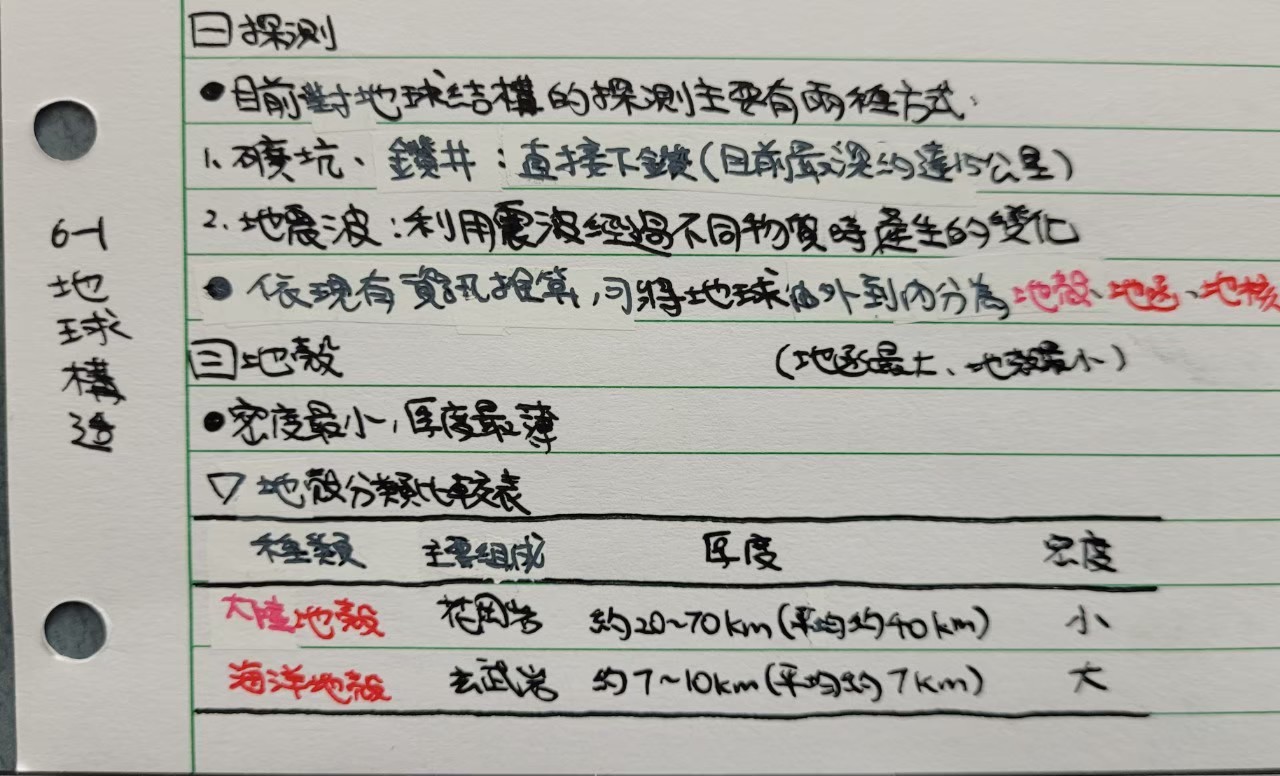 6-1
地
球
構
造
㊀探測
●目前對地球結構的探測主要有兩種方式:
1. 礦坑、鑽井:直接下鑽(目前最深約達15公里)
2. 地震波:利用震波經過不同物質時產生的變化
●依現有資訊推算,可將地球由外到內分為地殼、地函、地核
㊂地殼 (地函最大、地殼最小)
●密度最小,厚度最薄
▽地殼分類比較表
種類 主要組成 厚度 密度
大陸地殼 花岡岩 約20~70km(平均約40km) 小
海洋地殼 玄武岩 約7~10km(平均約7km) 大